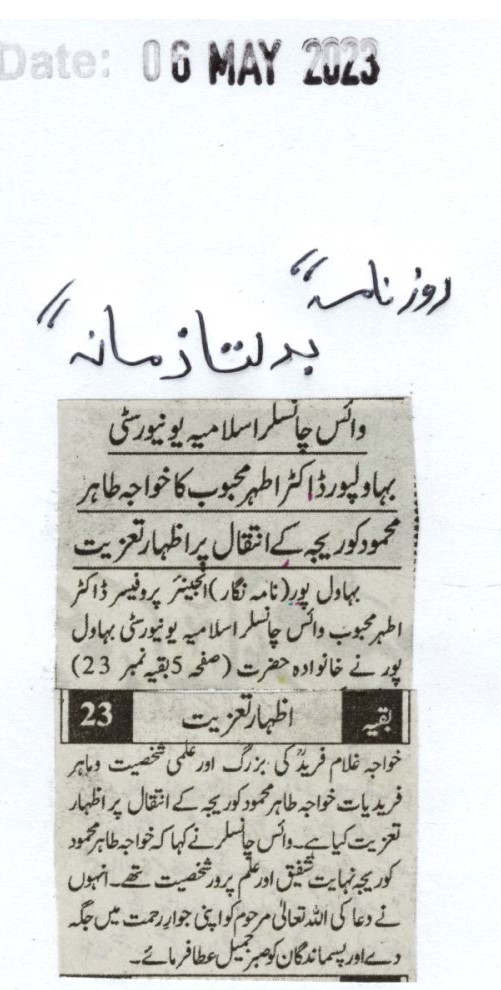 Date: 06 MAY 2023
روزنامہ “
بدلتا زمانہ “
وائس چانسلر اسلامیہ یونیورسٹی
بہاولپور ڈاکٹر اطہر محبوب کا خواجہ طاہر
محمود کوریجہ کے انتقال پر اظہار تعزیت
بہاول پور (نامہ نگار) انجینئر پروفیسر ڈاکٹر
اطہر محبوب وائس چانسلر اسلامیہ یونیورسٹی بہاول
پور نے خانوادہ حضرت (صفحہ 5 بقیہ نمبر 23)
بقیہ اظہار تعزیت 23
خواجہ غلام فریدؒ کی بزرگ اور علمی شخصیت و ماہر
فریدیات خواجہ طاہر محمود کوریجہ کے انتقال پر اظہار
تعزیت کیا ہے۔ وائس چانسلر نے کہا کہ خواجہ طاہر محمود
کوریجہ نہایت شفیق اور علم پرور شخصیت تھے۔ انہوں
نے دعا کی اللہ تعالیٰ مرحوم کو اپنی جوار رحمت میں جگہ
دے اور پسماندگان کو صبر جمیل عطا فرمائے۔